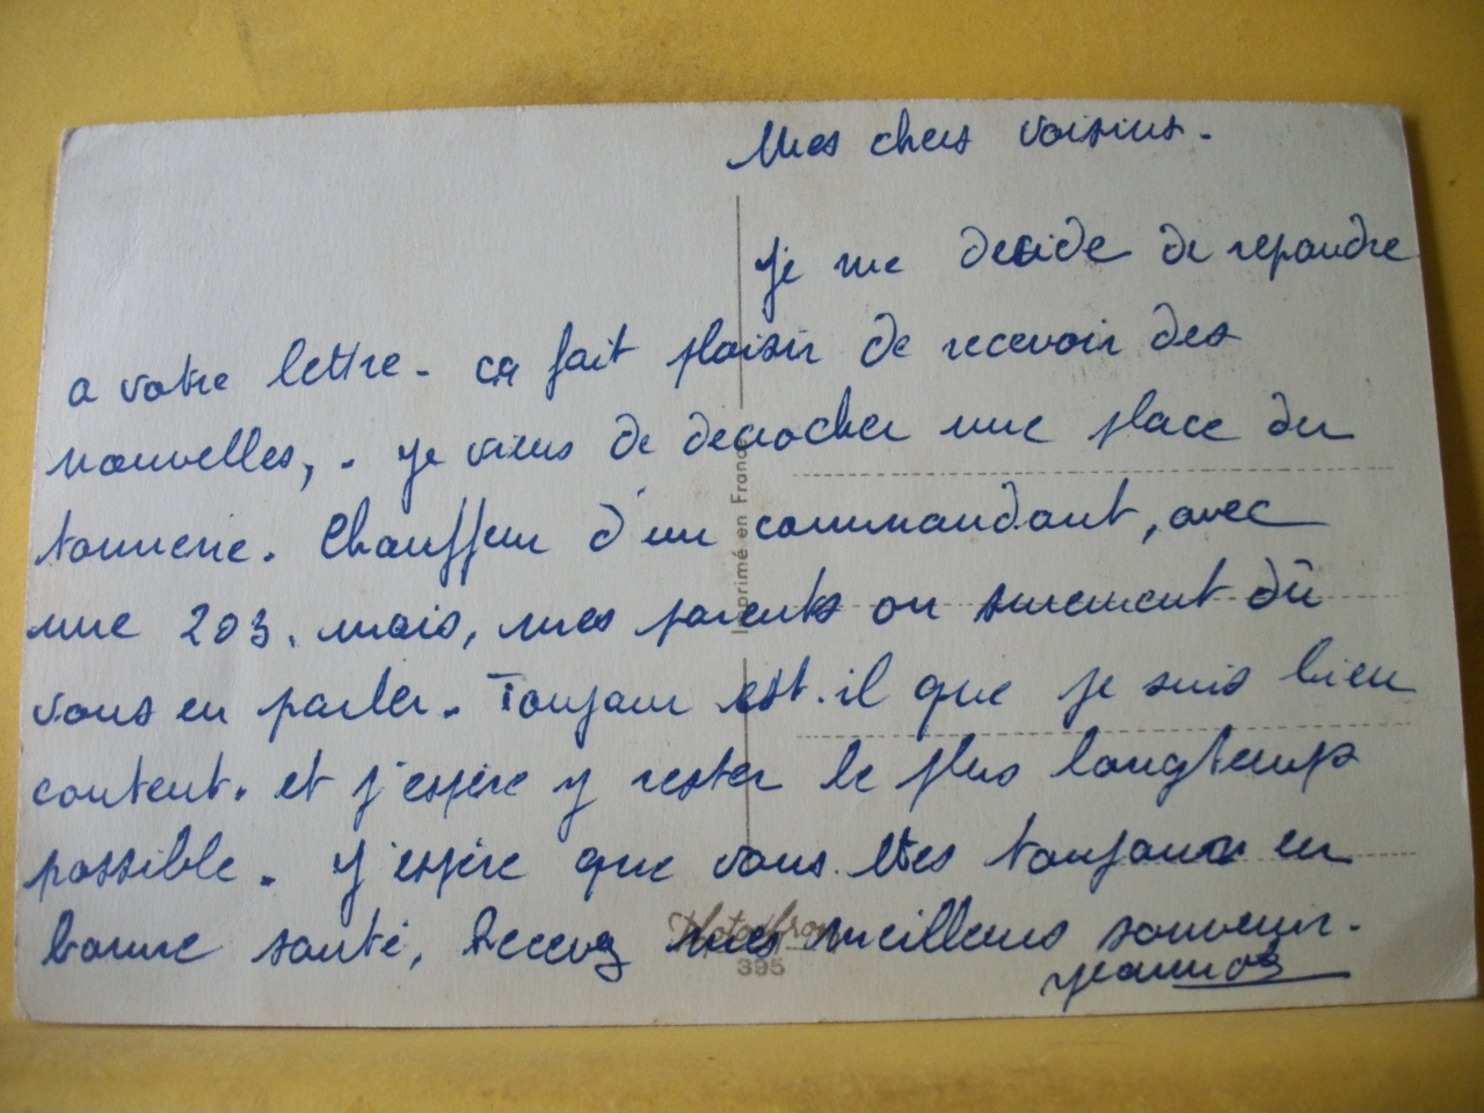 Mes chers voisins.
Je me decide de repondre
a votre lettre. ça fait plaisir de recevoir des
nouvelles,. Je viens de decrocher une place du
tonnerre. Chauffeur d'un commandant, avec
une 203. mais, mes parents on surement dû
vous en parler. Toujour est.il que je suis bien
content. et j'espère y rester le plus longtemps
possible. J'espère que vous êtes toujours en
bonne santé, Recevez mes meilleurs souvenir.
Imprimé en France
395